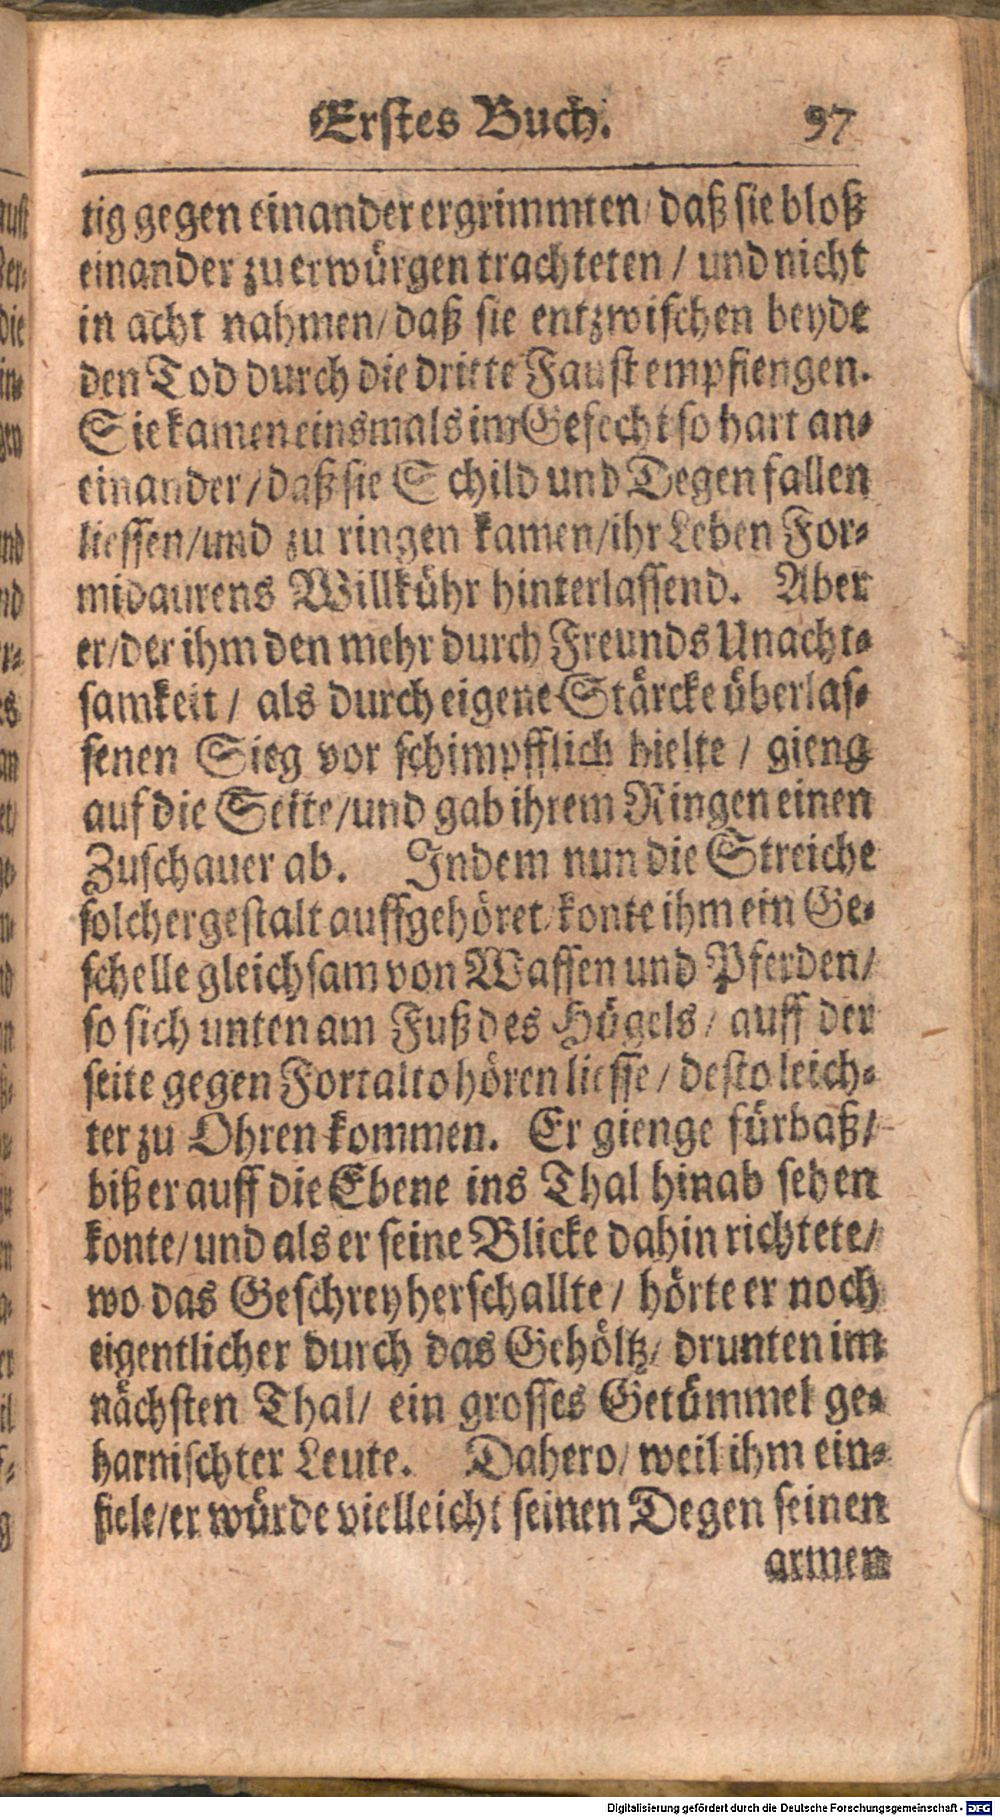 Erstes Buch. 97
tig gegen einander ergrimmten/ daß sie bloß
einander zu erwürgen trachteten / und nicht
in acht nahmen/ daß sie entzwischen beyde
den Tod durch die dritte Faust empfiengen.
Sie kamen einsmals im Gefecht so hart an-
einander / daß sie Schild und Degen fallen
liessen/und zu ringen kamen/ihr Leben For-
midaurens Willkühr hinterlassend. Aber
er/der ihm den mehr durch Freunds Unacht-
samkeit / als durch eigene Stärcke überlas-
senen Sieg vor schimpfflich hielte / gieng
auf die Seite/und gab ihrem Ringen einen
Zuschauer ab. Indem nun die Streiche
solchergestalt auffgehöret/ konte ihm ein Ge-
schelle gleichsam von Waffen und Pferden/
so sich unten am Fuß des Hügels / auff der
seite gegen Fortalto hören liesse / desto leich-
ter zu Ohren kommen. Er gienge fürbaß/
biß er auff die Ebene ins Thal hinab sehen
konte/ und als er seine Blicke dahin richtete/
wo das Geschrey herschallte / hörte er noch
eigentlicher durch das Gehöltz/ drunten im
nächsten Thal/ ein grosses Getümmel ge-
harnischter Leute. Dahero/ weil ihm ein-
fiele/er würde vielleicht seinen Degen seinen
armen
Digitalisierung gefördert durch die Deutsche Forschungsgemeinschaft - DFG